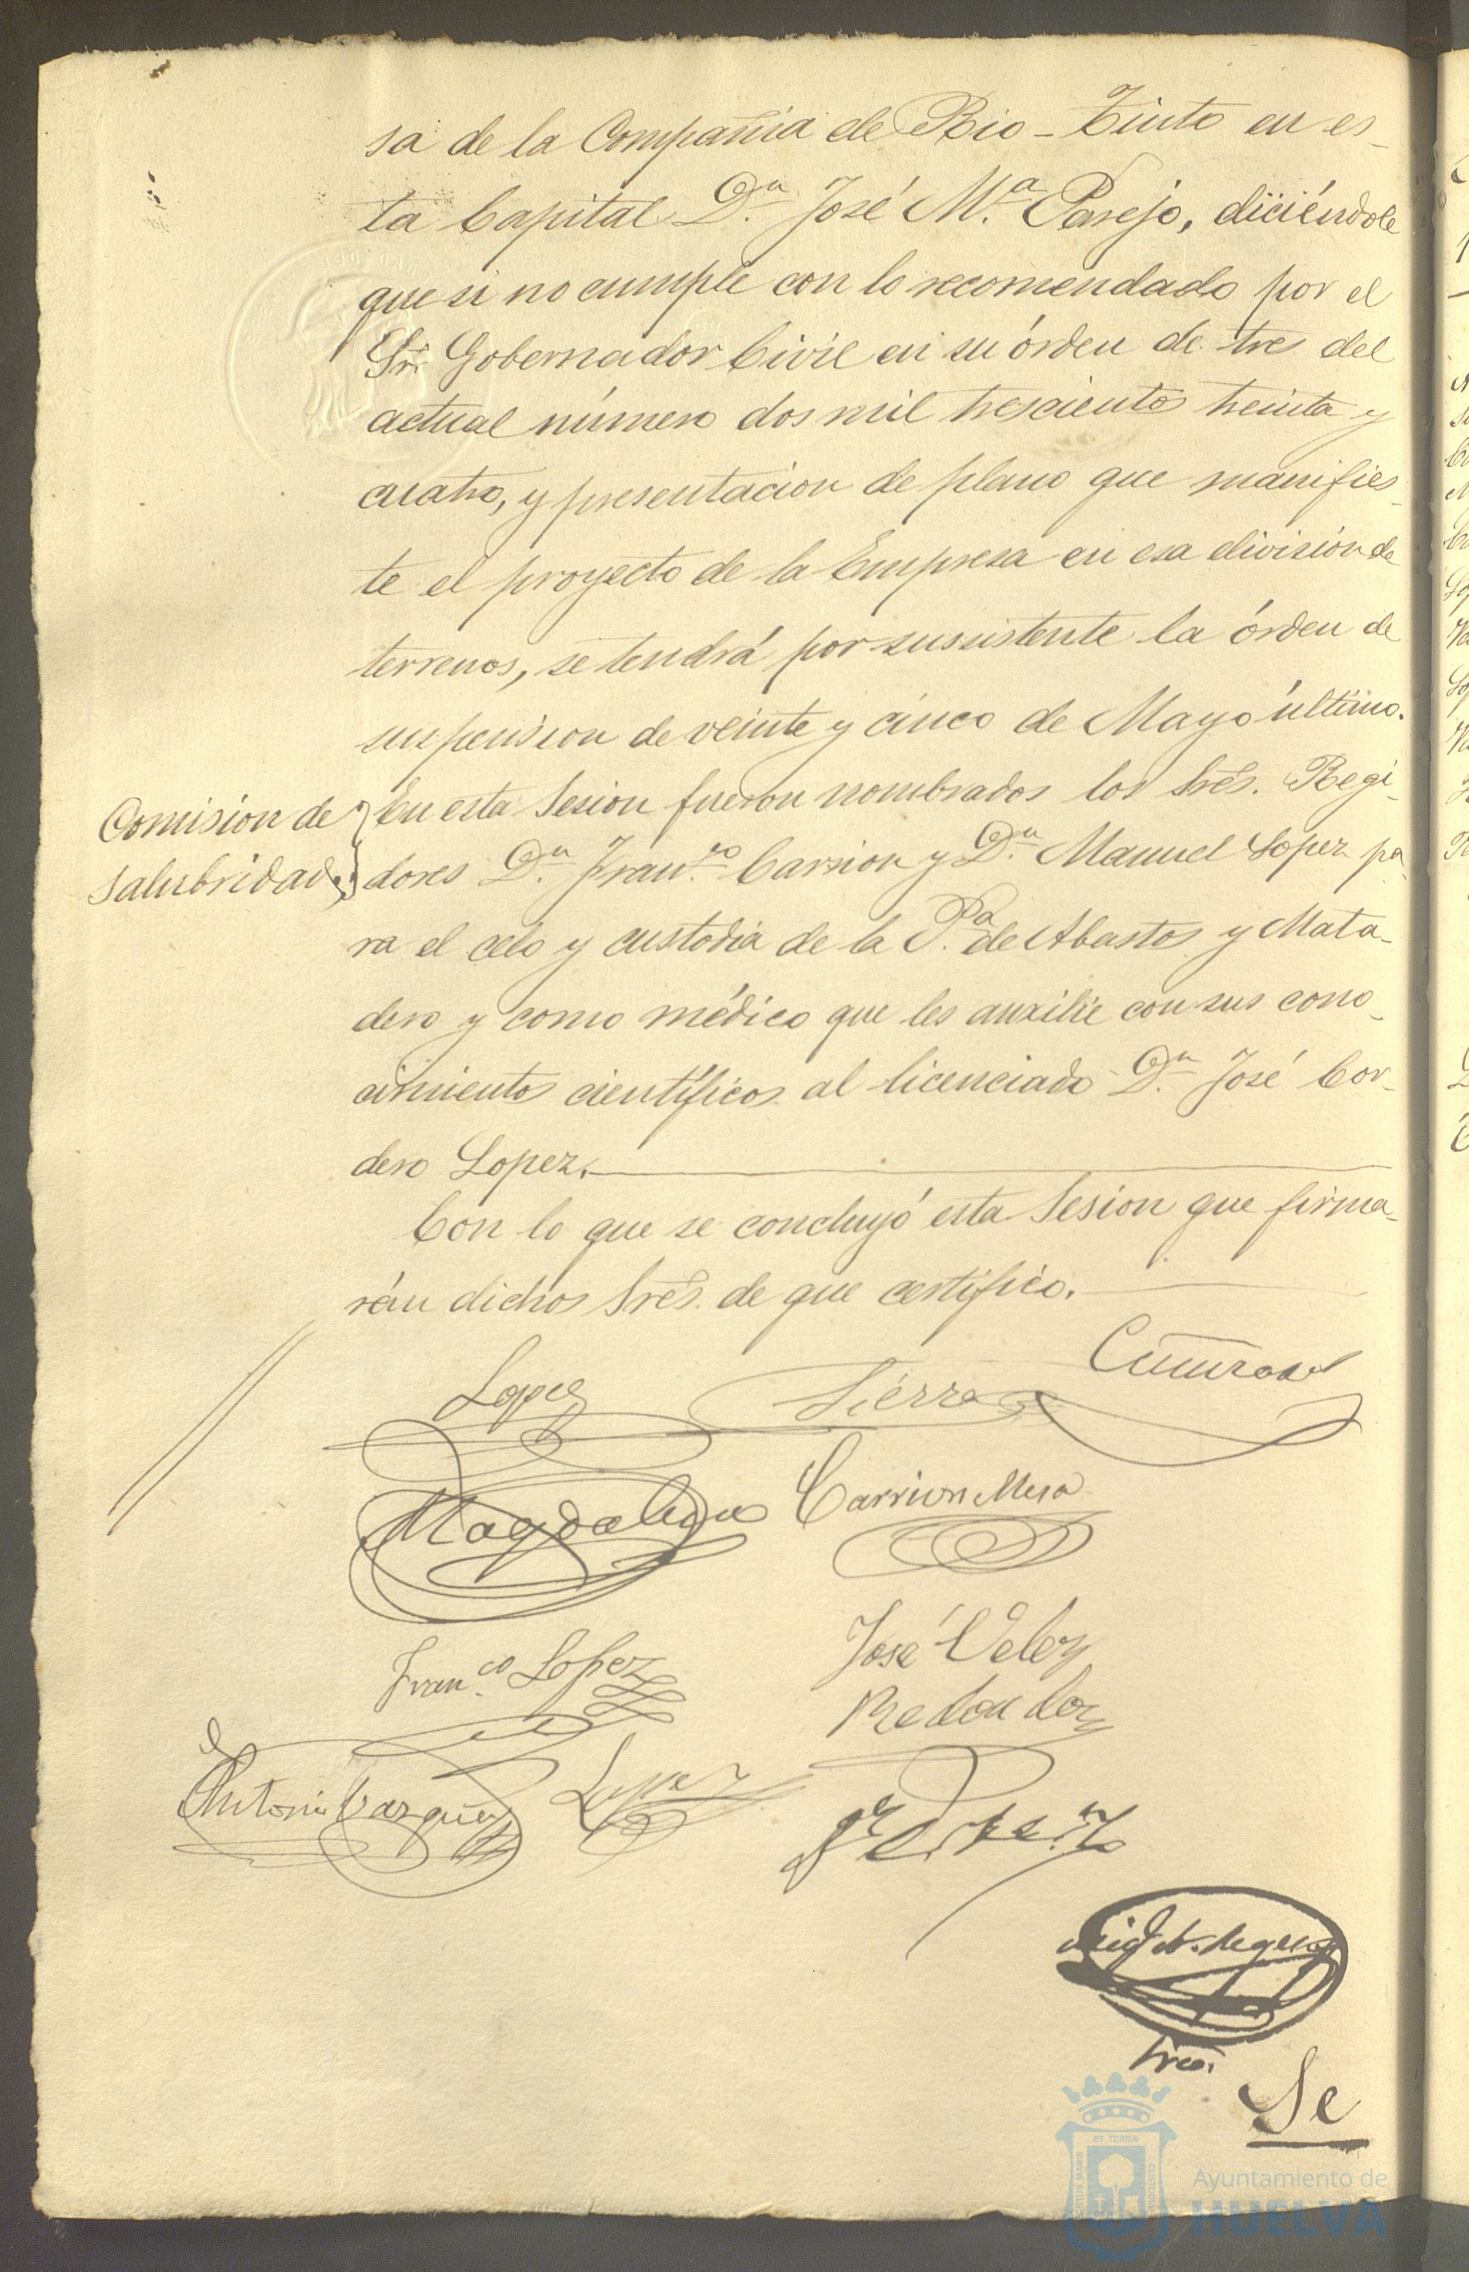 sa de la Compañia de Rio-Tinto en es-
ta Capital D.n José M.a Parejo, diciéndole
que si no cumple con lo recomendado por el
Sr. Gobernador Civil en su órden de tres del
actual número dos mil trescientos treinta y
cuatro, y presentacion de plano que manifies-
te el proyecto de la Empresa en esa division de
terrenos, se tendrá por sussistente la órden de
suspension de veinte y cinco de Mayo último.
Comision de
salubridad.
En esta Sesion fueron nombrados los Sres. Regi-
dores D.n Fran.co Carrion y D.n Manuel Lopez pa-
ra el celo y custodia de la P.a de Abastos y Mata-
dero y como médico que les auxilie con sus cono-
cimientos científicos al licenciado D.n José Cor-
dero Lopez.
Con lo que se concluyó esta Sesion que firma-
rán dichos Sres. de que certifico.
Lopez Sierra
Magdalena Carrion Mesa
Fran.co Lopez
José Velez
Redondo
Antonio Vazquez Lopez
Srio.
Se
ET TERRA
Ayuntamiento de
HUELVA